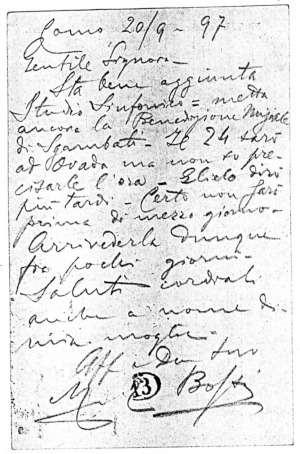 Como 20/9 - 97
Gentile Signora -
Sta bene aggiunta
Studio Sinfonico = metta
ancora la Benedizione Nuziale
di Sgambati - Il 24 sarò
ad Ovada ma non so pre-
cisarle l'ora - Glielo dirò
più tardi - Certo non sarò
prima di mezzo giorno -
Arrivederla dunque
fra pochi giorni -
Saluti cordiali
anche a nome di
mia moglie -
Aff Dev Suo
M 13 Bossi